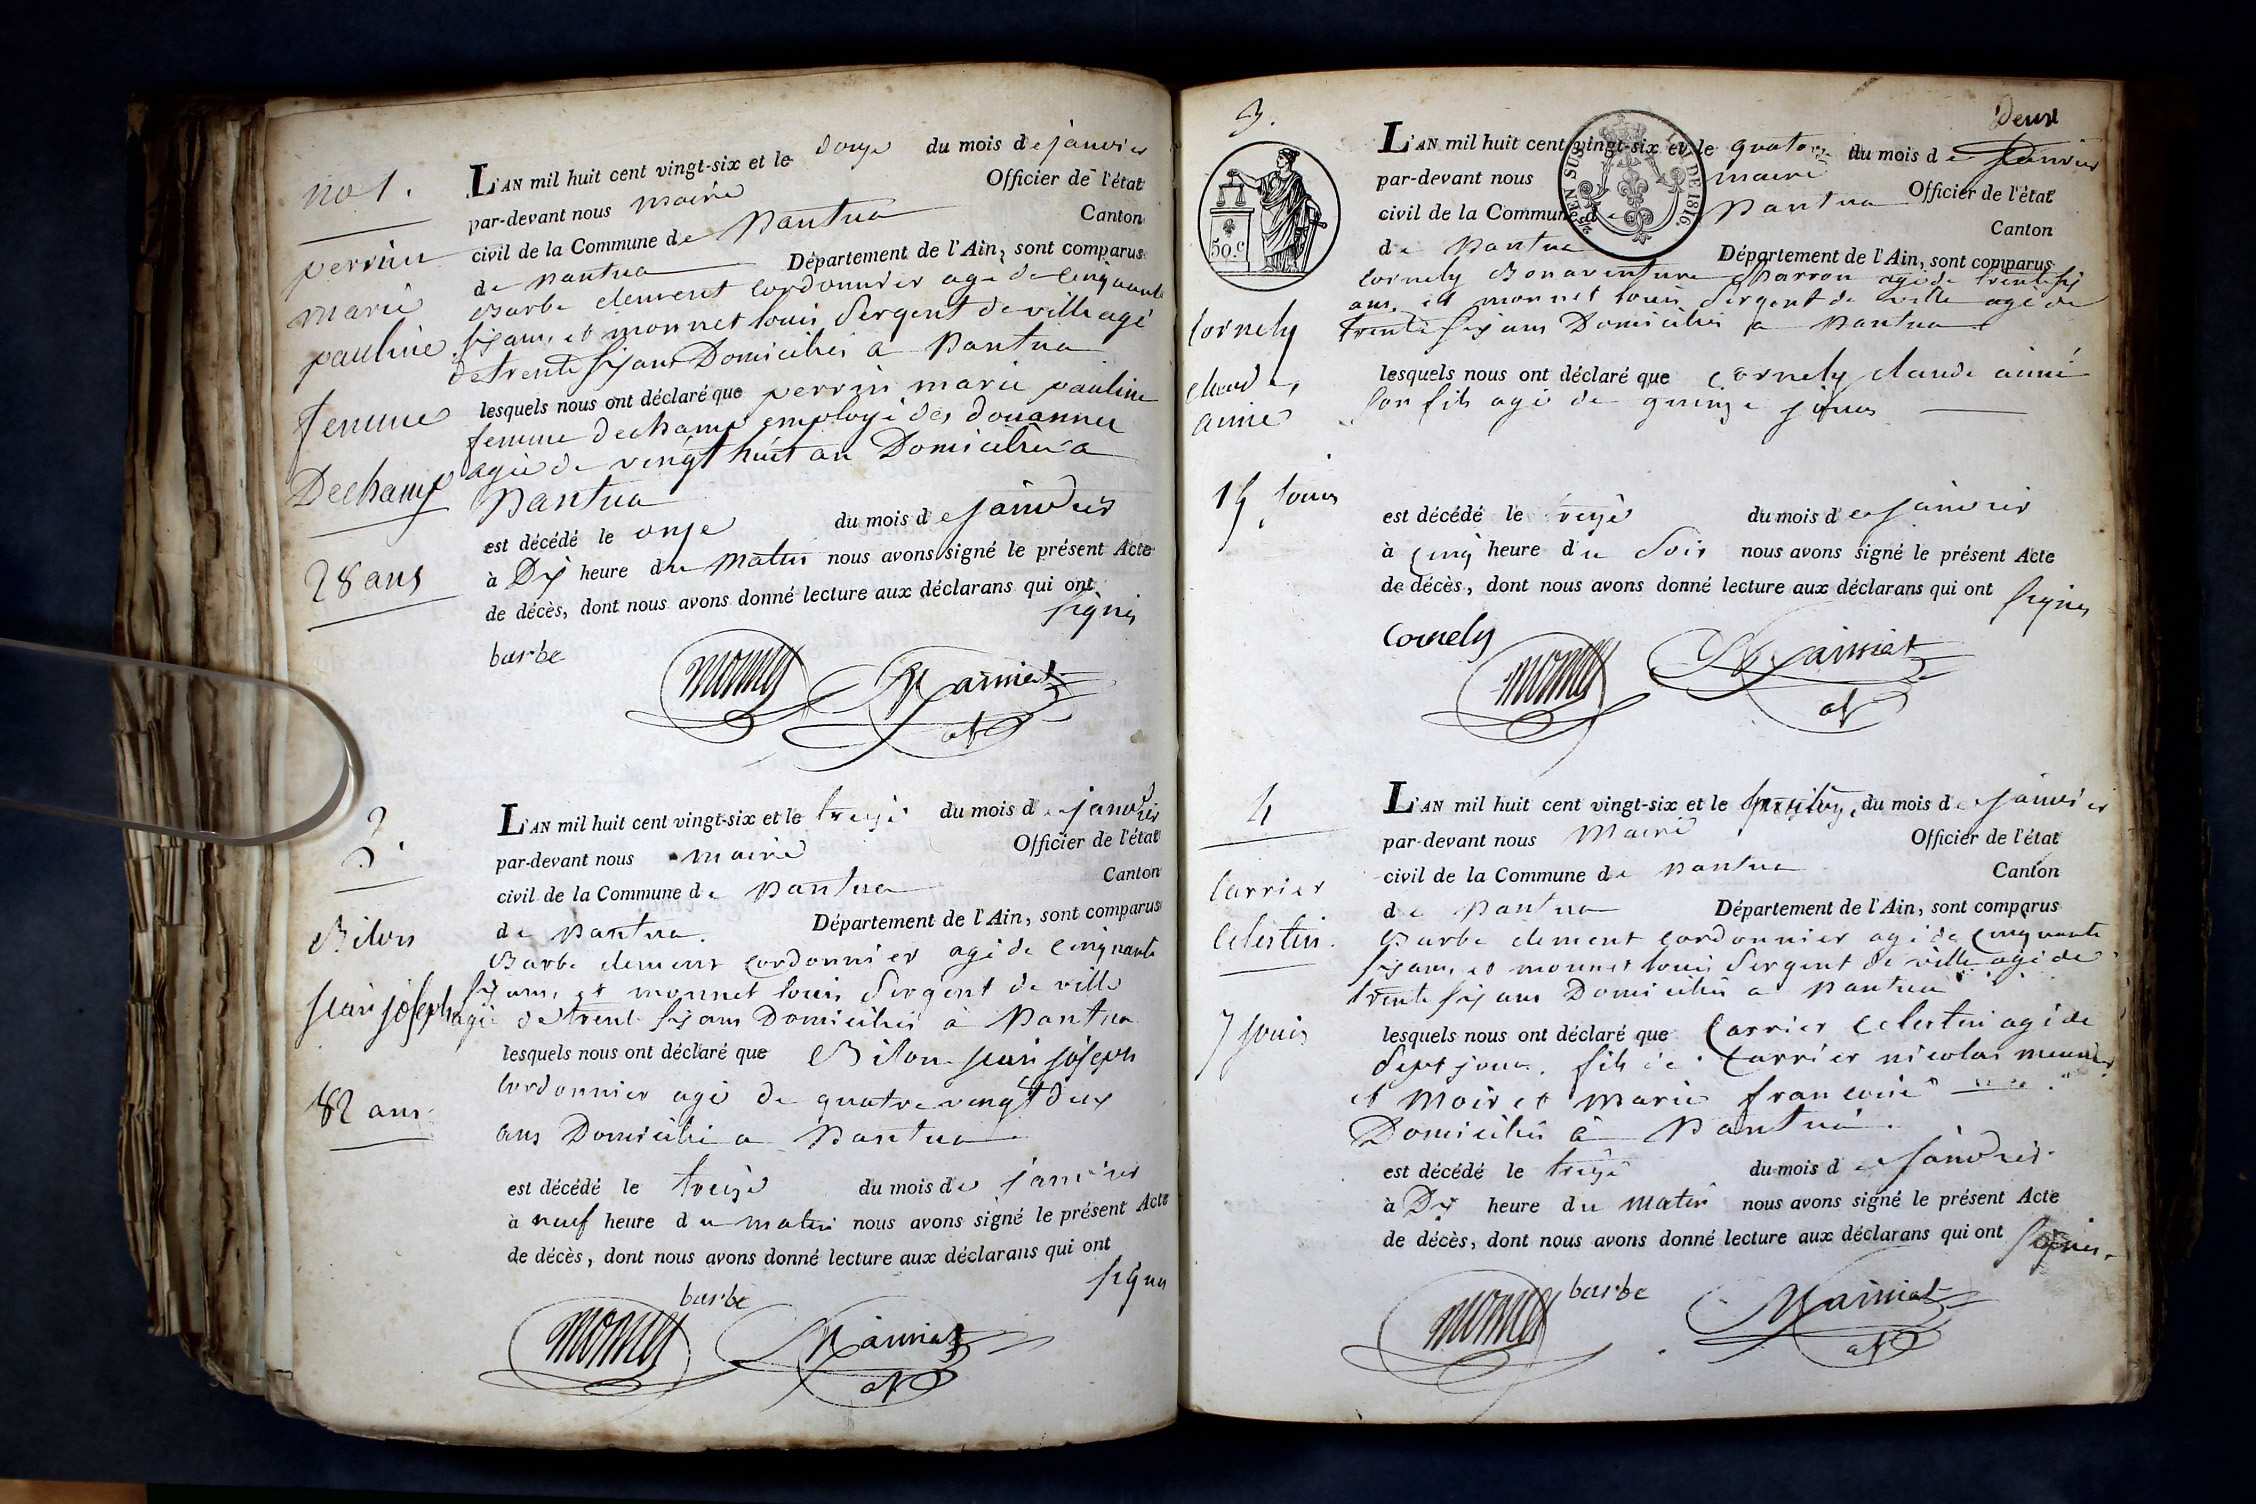 no 1.
perrin
marie
pauline
femme
Dechamp
28 ans
L'AN mil huit cent vingt-six et le douze du mois de janvier
par-devant nous maire Officier de l'état
civil de la Commune de Nantua Canton
de Nantua Département de l'Ain, sont comparus
Barbe clement cordonnier agé de cinquante
six ans, et monnet louis Sergent de ville agé
de trente six ans Domiciliés a Nantua
lesquels nous ont déclaré que perrin marie pauline
femme dechamp employé des douannes
agée de vingt huit an Domiciliée a
Nantua
est décédé le onze du mois de janvier
à Dix heure du matin nous avons signé le présent Acte
de décès, dont nous avons donné lecture aux déclarans qui ont
signés
barbe monnet
2.
Biton
jean joseph
82 ans
L'AN mil huit cent vingt-six et le treize du mois de janvier
par-devant nous maire Officier de l'état
civil de la Commune de Nantua Canton
de Nantua. Département de l'Ain, sont comparus
Barbe clement cordonnier agé de cinquante
six ans, et monnet louis Sergent de ville
agé de trente six ans Domiciliés à Nantua
lesquels nous ont déclaré que Biton jean joseph
cordonnier agé de quatre vingt deux
ans Domicilié a Nantua
est décédé le treize du mois de janvier
à neuf heure du matin nous avons signé le présent Acte
de décès, dont nous avons donné lecture aux déclarans qui ont
signés
barbe
monnet
deux
3.
50.c
LOI DE 1816.
Cornely
claude
aimé
15 jours
L'AN mil huit cent vingt-six et le quatorze du mois de Janvier
par-devant nous maire Officier de l'état
civil de la Commune de Nantua Canton
de Nantua Département de l'Ain, sont comparus
cornely Bonaventure agé de trente six
ans, et monnet louis Sergent de ville agé de
trente six ans Domiciliés a Nantua
lesquels nous ont déclaré que Cornely claude aimé
son fils agé de quinze jours
est décédé le treize du mois de janvier
à cinq heure du Soir nous avons signé le présent Acte
de décès, dont nous avons donné lecture aux déclarans qui ont signés
Cornely monnet
4
Carrier
Celestin.
7 jours
L'AN mil huit cent vingt-six et le du mois de janvier
par-devant nous Maire Officier de l'état
civil de la Commune de Nantua Canton
de Nantua Département de l'Ain, sont comparus
Barbe clement cordonnier agé de cinquante
six ans, et monnet louis Sergent de ville agé de
trente six ans Domiciliés a Nantua
lesquels nous ont déclaré que Carrier Celestin agé de
Sept jours. fils de Carrier nicolas
et marie françoise
Domiciliés à Nantua.
est décédé le treize du mois de janvier
à Dix heure du matin nous avons signé le présent Acte
de décès, dont nous avons donné lecture aux déclarans qui ont signés.
monnet barbe